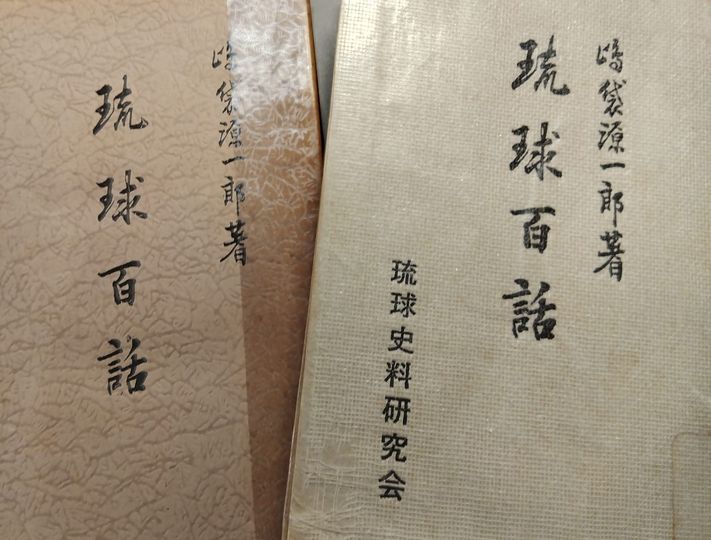 嶋袋源一郎著
琉球百話
嶋袋源一郎著
琉球百話
琉球史料研究会